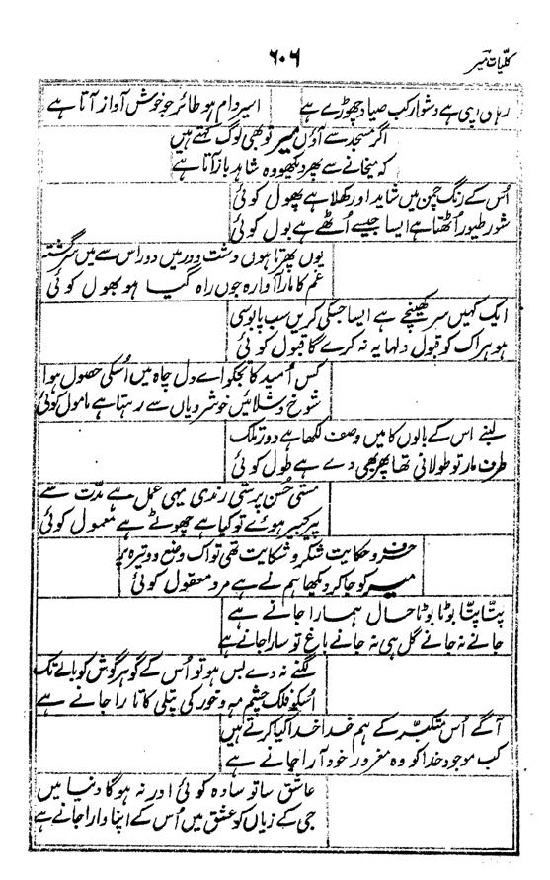 کلیات میر
۶۰۶
رہاں رہی ہے دشوار کب صیاد چھوڑے ہے
اسیر دام ہو طائر جو خوش آواز آتا ہے
اگر مسجد سے آؤں میر تو بھی لوگ کہتے ہیں
کہ میخانے سے پھر دیکھو وہ شاہد باز آتا ہے
اُس کے رنگ چمن میں شاید اور کھلا ہے پھول کوئی
شور طیور اُٹھتا ہے ایسا جیسے اُٹھے ہے بول کوئی
یوں پھرتا ہوں دشت و در میں دور اس سے میں سرگشتہ
غم کا مارا آوارہ جوں راہ گیا ہو بھول کوئی
ایک کہیں سر کھینچے ہے ایسا جسکی کریں سب پابوسی
ہو ہر اک کو قبول دلہا یہ نہ کرے گا قبول کوئی
کس اُمید کا تجکو اے دل چاہ میں اُسکی حصول ہوا
شوخ و شلائیں خوشرویاں سے رہتا ہے مامول کوئی
لمبے اس کے بالوں کا میں وصف لکھا ہے دور تلک
طرف مار تو طولانی تھا پھر بھی دے ہے طول کوئی
مستی حُسن پرستی رندی یہی عمل ہے مدت سے
پیر کبیر ہوئے تو کیا ہے چھوٹے ہے معمول کوئی
حرف و حکایت شکر و شکایت تھی تو اک وضع و وتیرہ پر
میر کو جا کر دیکھا ہم نے ہے مرد معقول کوئی
پتّا پتّا بوٹا بوٹا حال ہمارا جانے ہے
جانے نہ جانے گل ہی نہ جانے باغ تو سارا جانے ہے
لگنے نہ دے بس ہو تو اُس کے گوہر گوش کو بالے تک
اُسکو فلک چشم مہ و خور کی پتلی کا تارا جانے ہے
آگے اُس متکبر کے ہم خدا خدا کیا کرتے ہیں
کب موجود خدا کو وہ مغرور خود آرا جانے ہے
عاشق سا تو سادہ کوئی اور نہ ہوگا دنیا میں
جی کے زیاں کو عشق میں اُس کے اپنا وارا جانے ہے